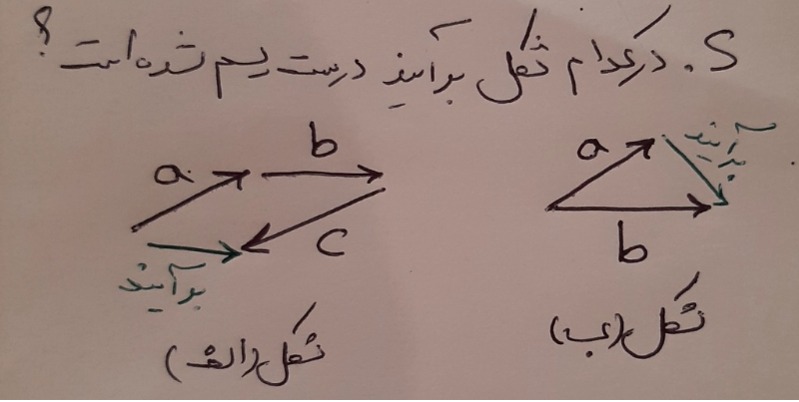 5. در کدام شکل برآیند درست رسم شده است؟
a b c برآیند
شکل (الف)
a b برآیند
شکل (ب)